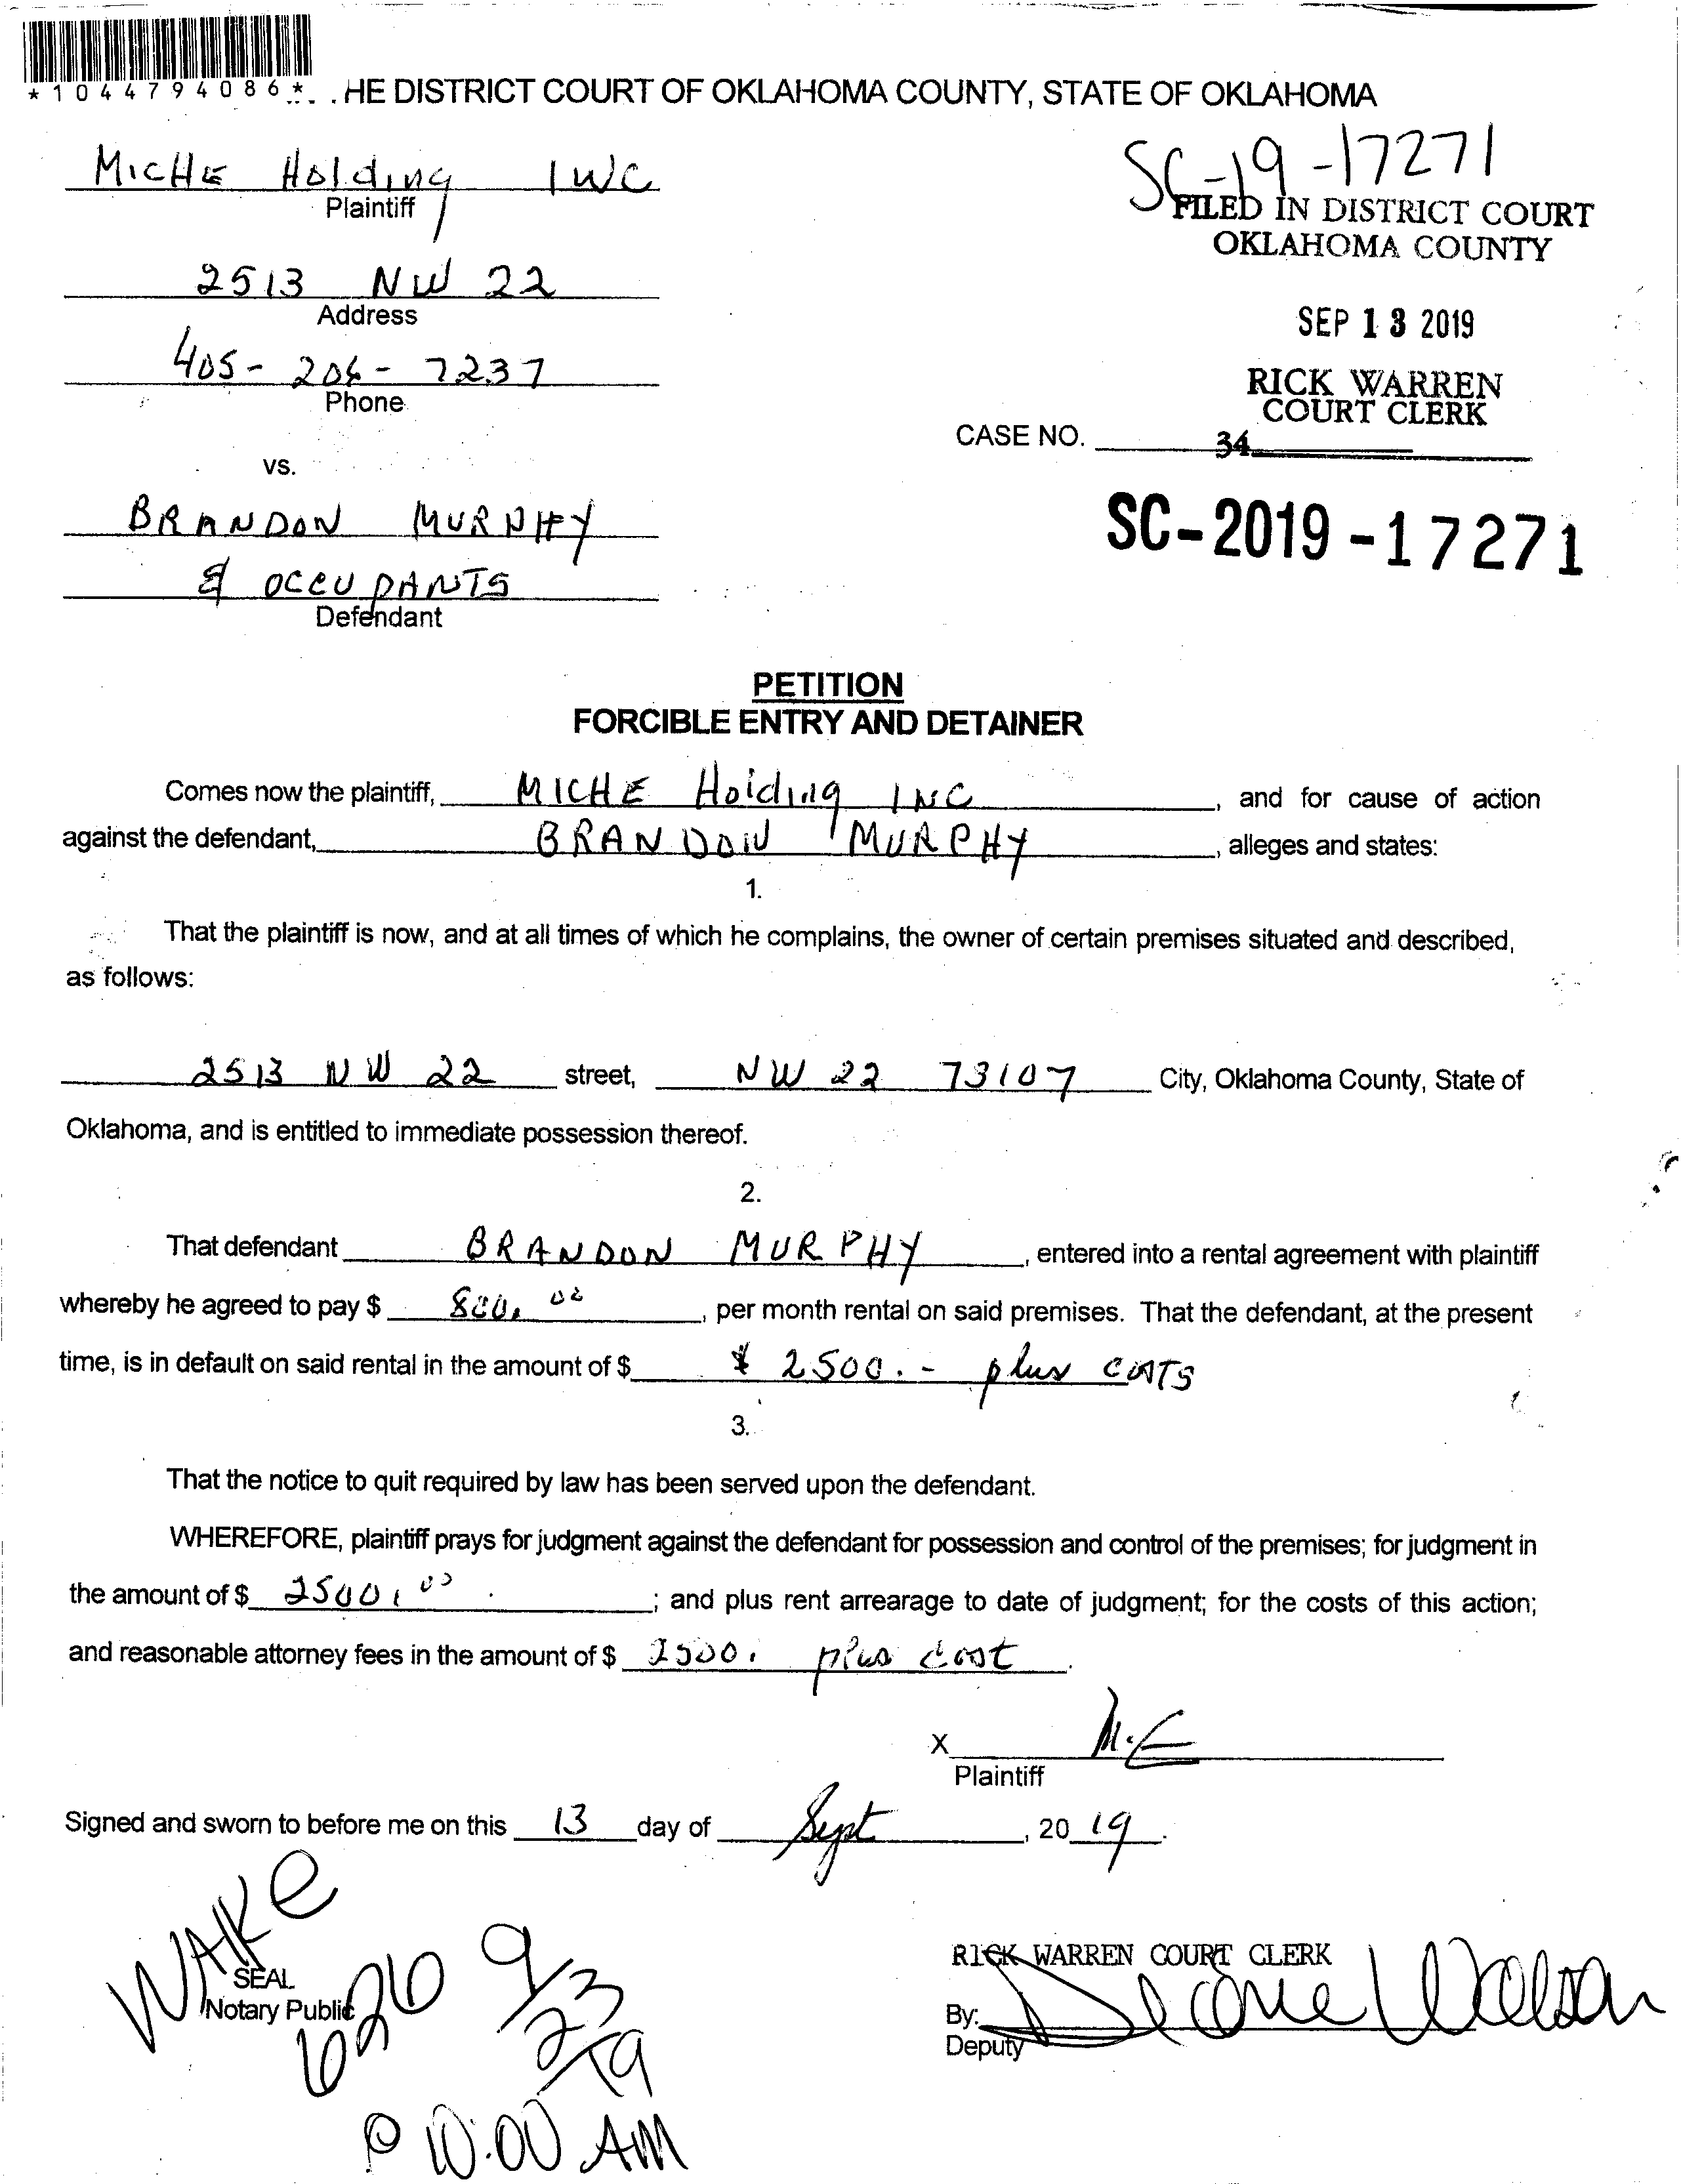 *1044794086*
HE DISTRICT COURT OF OKLAHOMA COUNTY, STATE OF OKLAHOMA
MICHE Holding INC
Plaintiff
SC-19-17271
FILED IN DISTRICT COURT
OKLAHOMA COUNTY
2513 NW 22
Address
SEP 13 2019
405-206-7237
Phone
RICK WARREN
COURT CLERK
CASE NO.
34
vs.
BRANDON MURPHY
& OCCUPANTS
Defendant
SC-2019-17271
PETITION
FORCIBLE ENTRY AND DETAINER
Comes now the plaintiff, MICHE Holding INC, and for cause of action
against the defendant, BRANDON MURPHY, alleges and states:
1.
That the plaintiff is now, and at all times of which he complains, the owner of certain premises situated and described,
as follows:
2513 NW 22 street, NW 22 73107 City, Oklahoma County, State of
Oklahoma, and is entitled to immediate possession thereof.
2.
That defendant BRANDON MURPHY, entered into a rental agreement with plaintiff
whereby he agreed to pay $ 800.00, per month rental on said premises. That the defendant, at the present
time, is in default on said rental in the amount of $ $ 2500.- plus COSTS
3.
That the notice to quit required by law has been served upon the defendant.
WHEREFORE, plaintiff prays for judgment against the defendant for possession and control of the premises; for judgment in
the amount of $ 2500.00; and plus rent arrearage to date of judgment; for the costs of this action;
and reasonable attorney fees in the amount of $ 2500. plus cost.
X M.E
Plaintiff
Signed and sworn to before me on this 13 day of Sept, 2019.
WAIKE
SEAL
Notary Public
626 9/23/19
@ 10:00 AM
RICK WARREN COURT CLERK
By:
Deputy